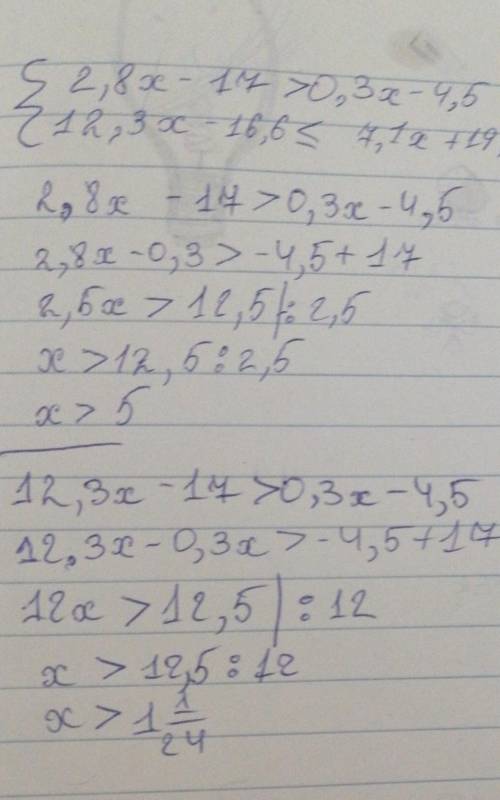 { 2,8x - 17 > 0,3x - 4,5
12,3x - 16,6 ≤ 7,1x + 19
2,8x - 17 > 0,3x - 4,5
2,8x - 0,3 > -4,5 + 17
2,5x > 12,5 | : 2,5
x > 12,5 : 2,5
x > 5
12,3x - 17 > 0,3x - 4,5
12,3x - 0,3x > -4,5 + 17
12x > 12,5 | : 12
x > 12,5 : 12
x > 1 1/24